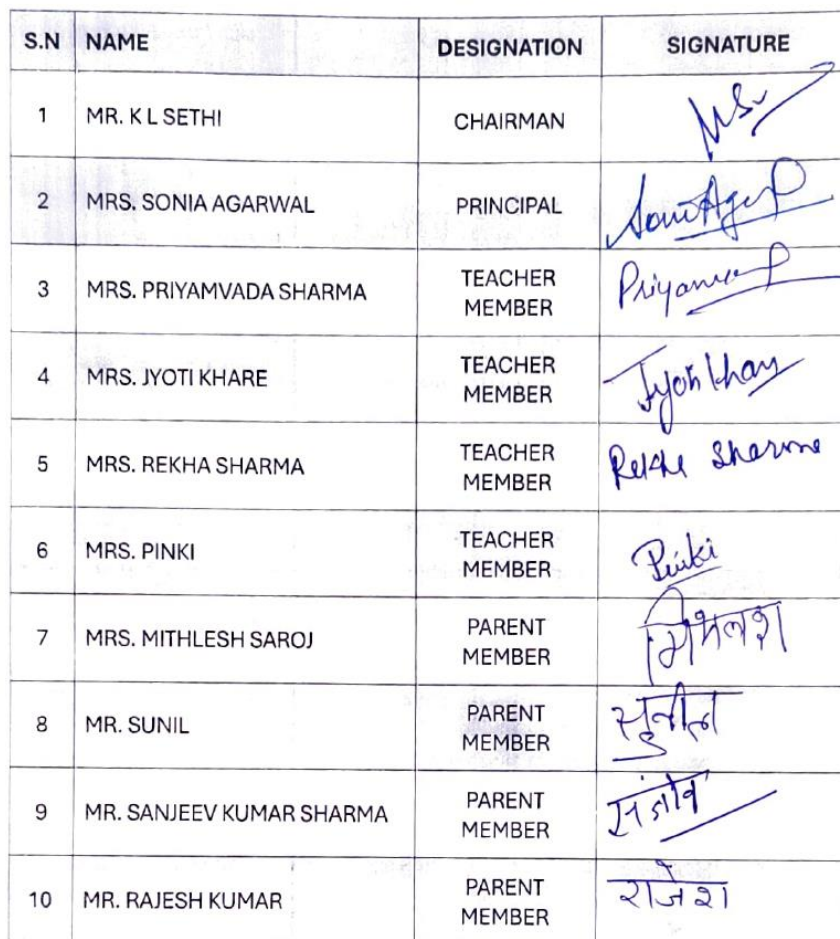 S.N NAME DESIGNATION SIGNATURE
1 MR. K L SETHI CHAIRMAN
2 MRS. SONIA AGARWAL PRINCIPAL
3 MRS. PRIYAMVADA SHARMA TEACHER MEMBER
4 MRS. JYOTI KHARE TEACHER MEMBER Jyoti Khare
5 MRS. REKHA SHARMA TEACHER MEMBER Rekha Sharma
6 MRS. PINKI TEACHER MEMBER Pinki
7 MRS. MITHLESH SAROJ PARENT MEMBER मिथलेश
8 MR. SUNIL PARENT MEMBER सुनील
9 MR. SANJEEV KUMAR SHARMA PARENT MEMBER संजीव
10 MR. RAJESH KUMAR PARENT MEMBER राजेश